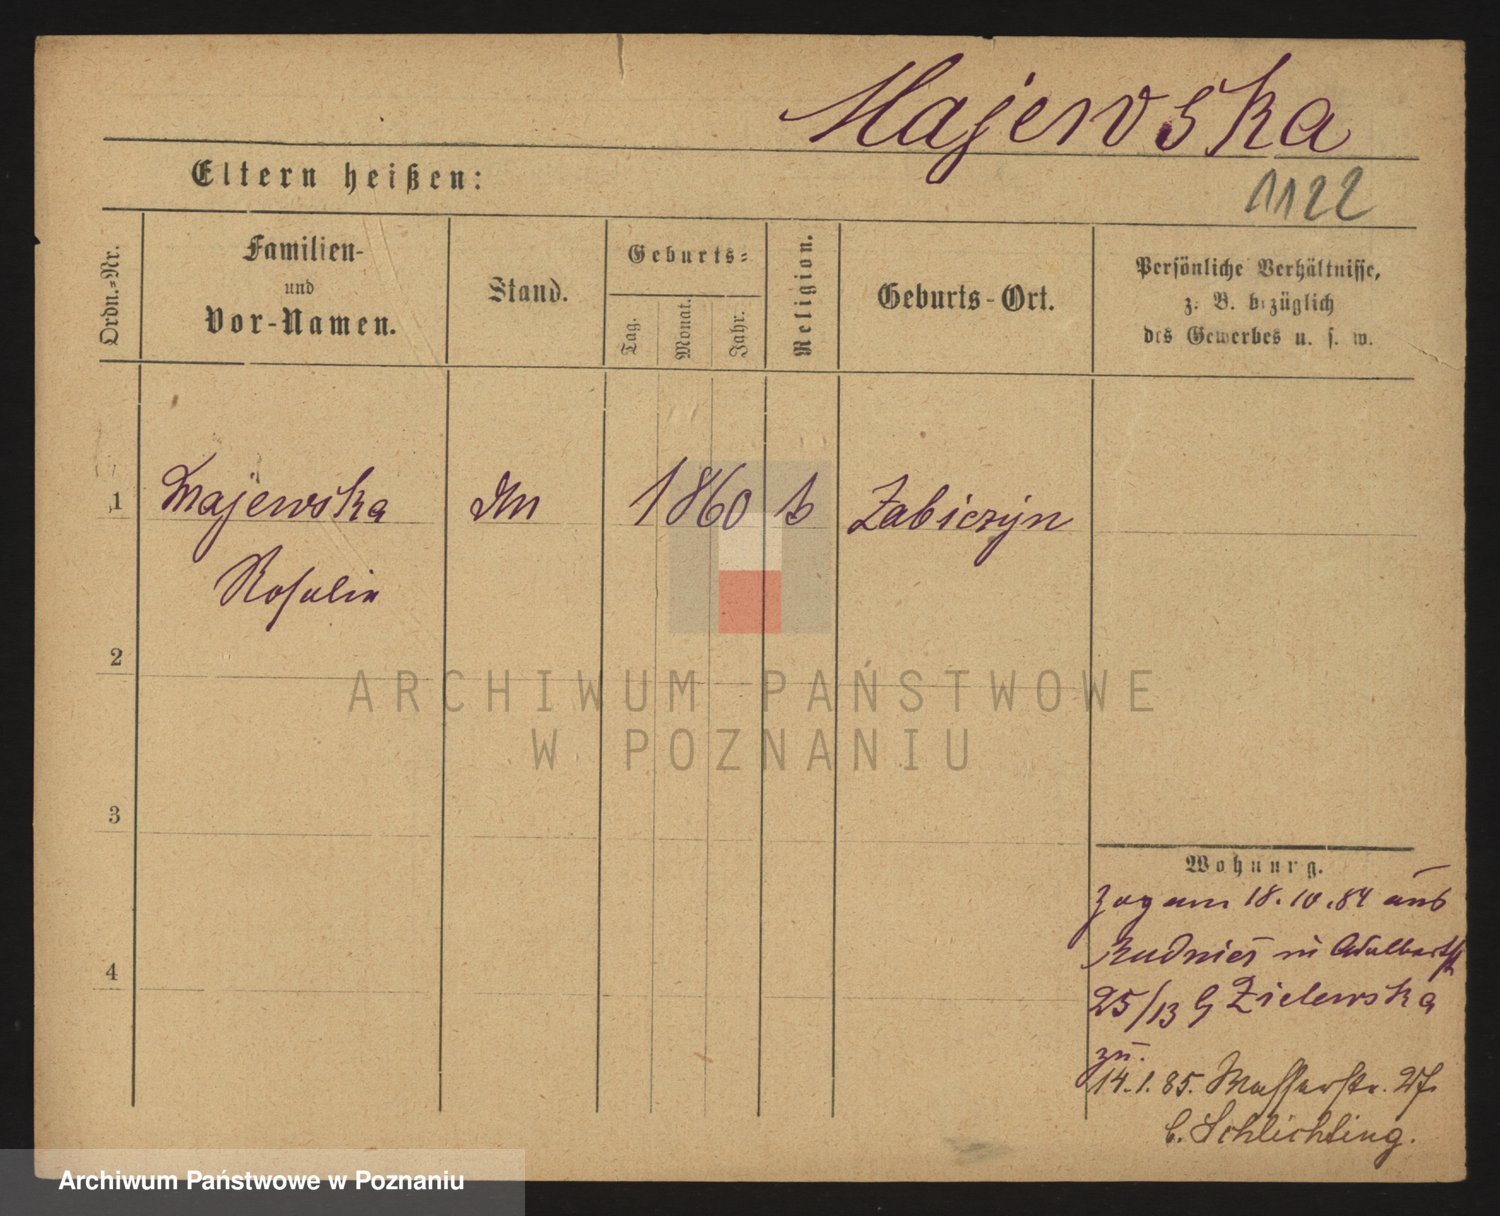 Majewska
1122
Eltern heißen:
Ordn.=Nr.
Familien-
und
Vor-Namen.
Stand.
Geburts=
Tag.
Monat.
Jahr.
Religion.
Geburts-Ort.
Persönliche Verhältnisse,
z. B. bezüglich
des Gewerbes u. s. w.
1 Majewska 1860 Zabiczyn
Rosalie
2
ARCHIWUM PAŃSTWOWE
W POZNANIU
3
Wohnung.
zog am 18.10.84 aus
Rudnicz in Adalbertst
25/13 Zielewska
zu.
4
14.1.85. Wasserstr.
b. Schlichting.
Archiwum Państwowe w Poznaniu